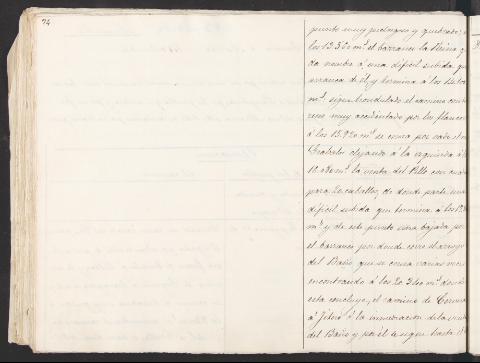 74
punto muy peligroso y quebrado; á
los 13.560 m.s el barranco la Reina q.
da nombre á una dificil subida que
arranca de él, y termina á los
m.s sigue hondulado el camino en ter
reno muy accidentado por los flancos
á los 13.920 m.s se cruza por vado el rio
Grabalos dejando á la izquierda á los
m.s la venta del Pillo con cuadra
para 20 caballos, de donde parte una
dificil subida que termina á los
m.s y de este punto una bajada por
el barranco por donde corre el arroyo
del Baño, que se cruza varias veces
encontrando á los 20.340 m.s donde
esta concluye, el camino de Cervera
á Fitero á la inmediacion de la venta
del Baño y por él se sigue hasta